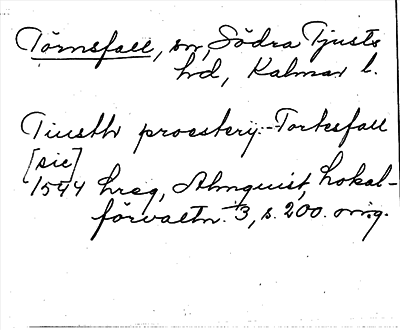 Törnsfall, sn, Södra Tjusts
hd, Kalmar l.
Tiusth proesterij - Torkesfall
[sic]
1544 hreg, Almquist, Lokal-
förvaltn. 3, s. 200. orig.